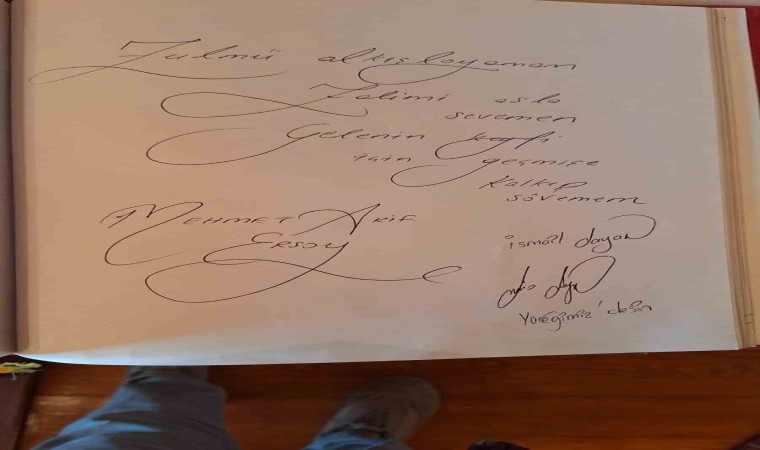 Zulmü alkışlayamam
Zalimi asla
sevemem
Gelenin keyfi
için geçmişe
Kalkıp
sövemem
MEHMET AKİF
ERSOY
ismail dayan
Yüreğimiz'desin